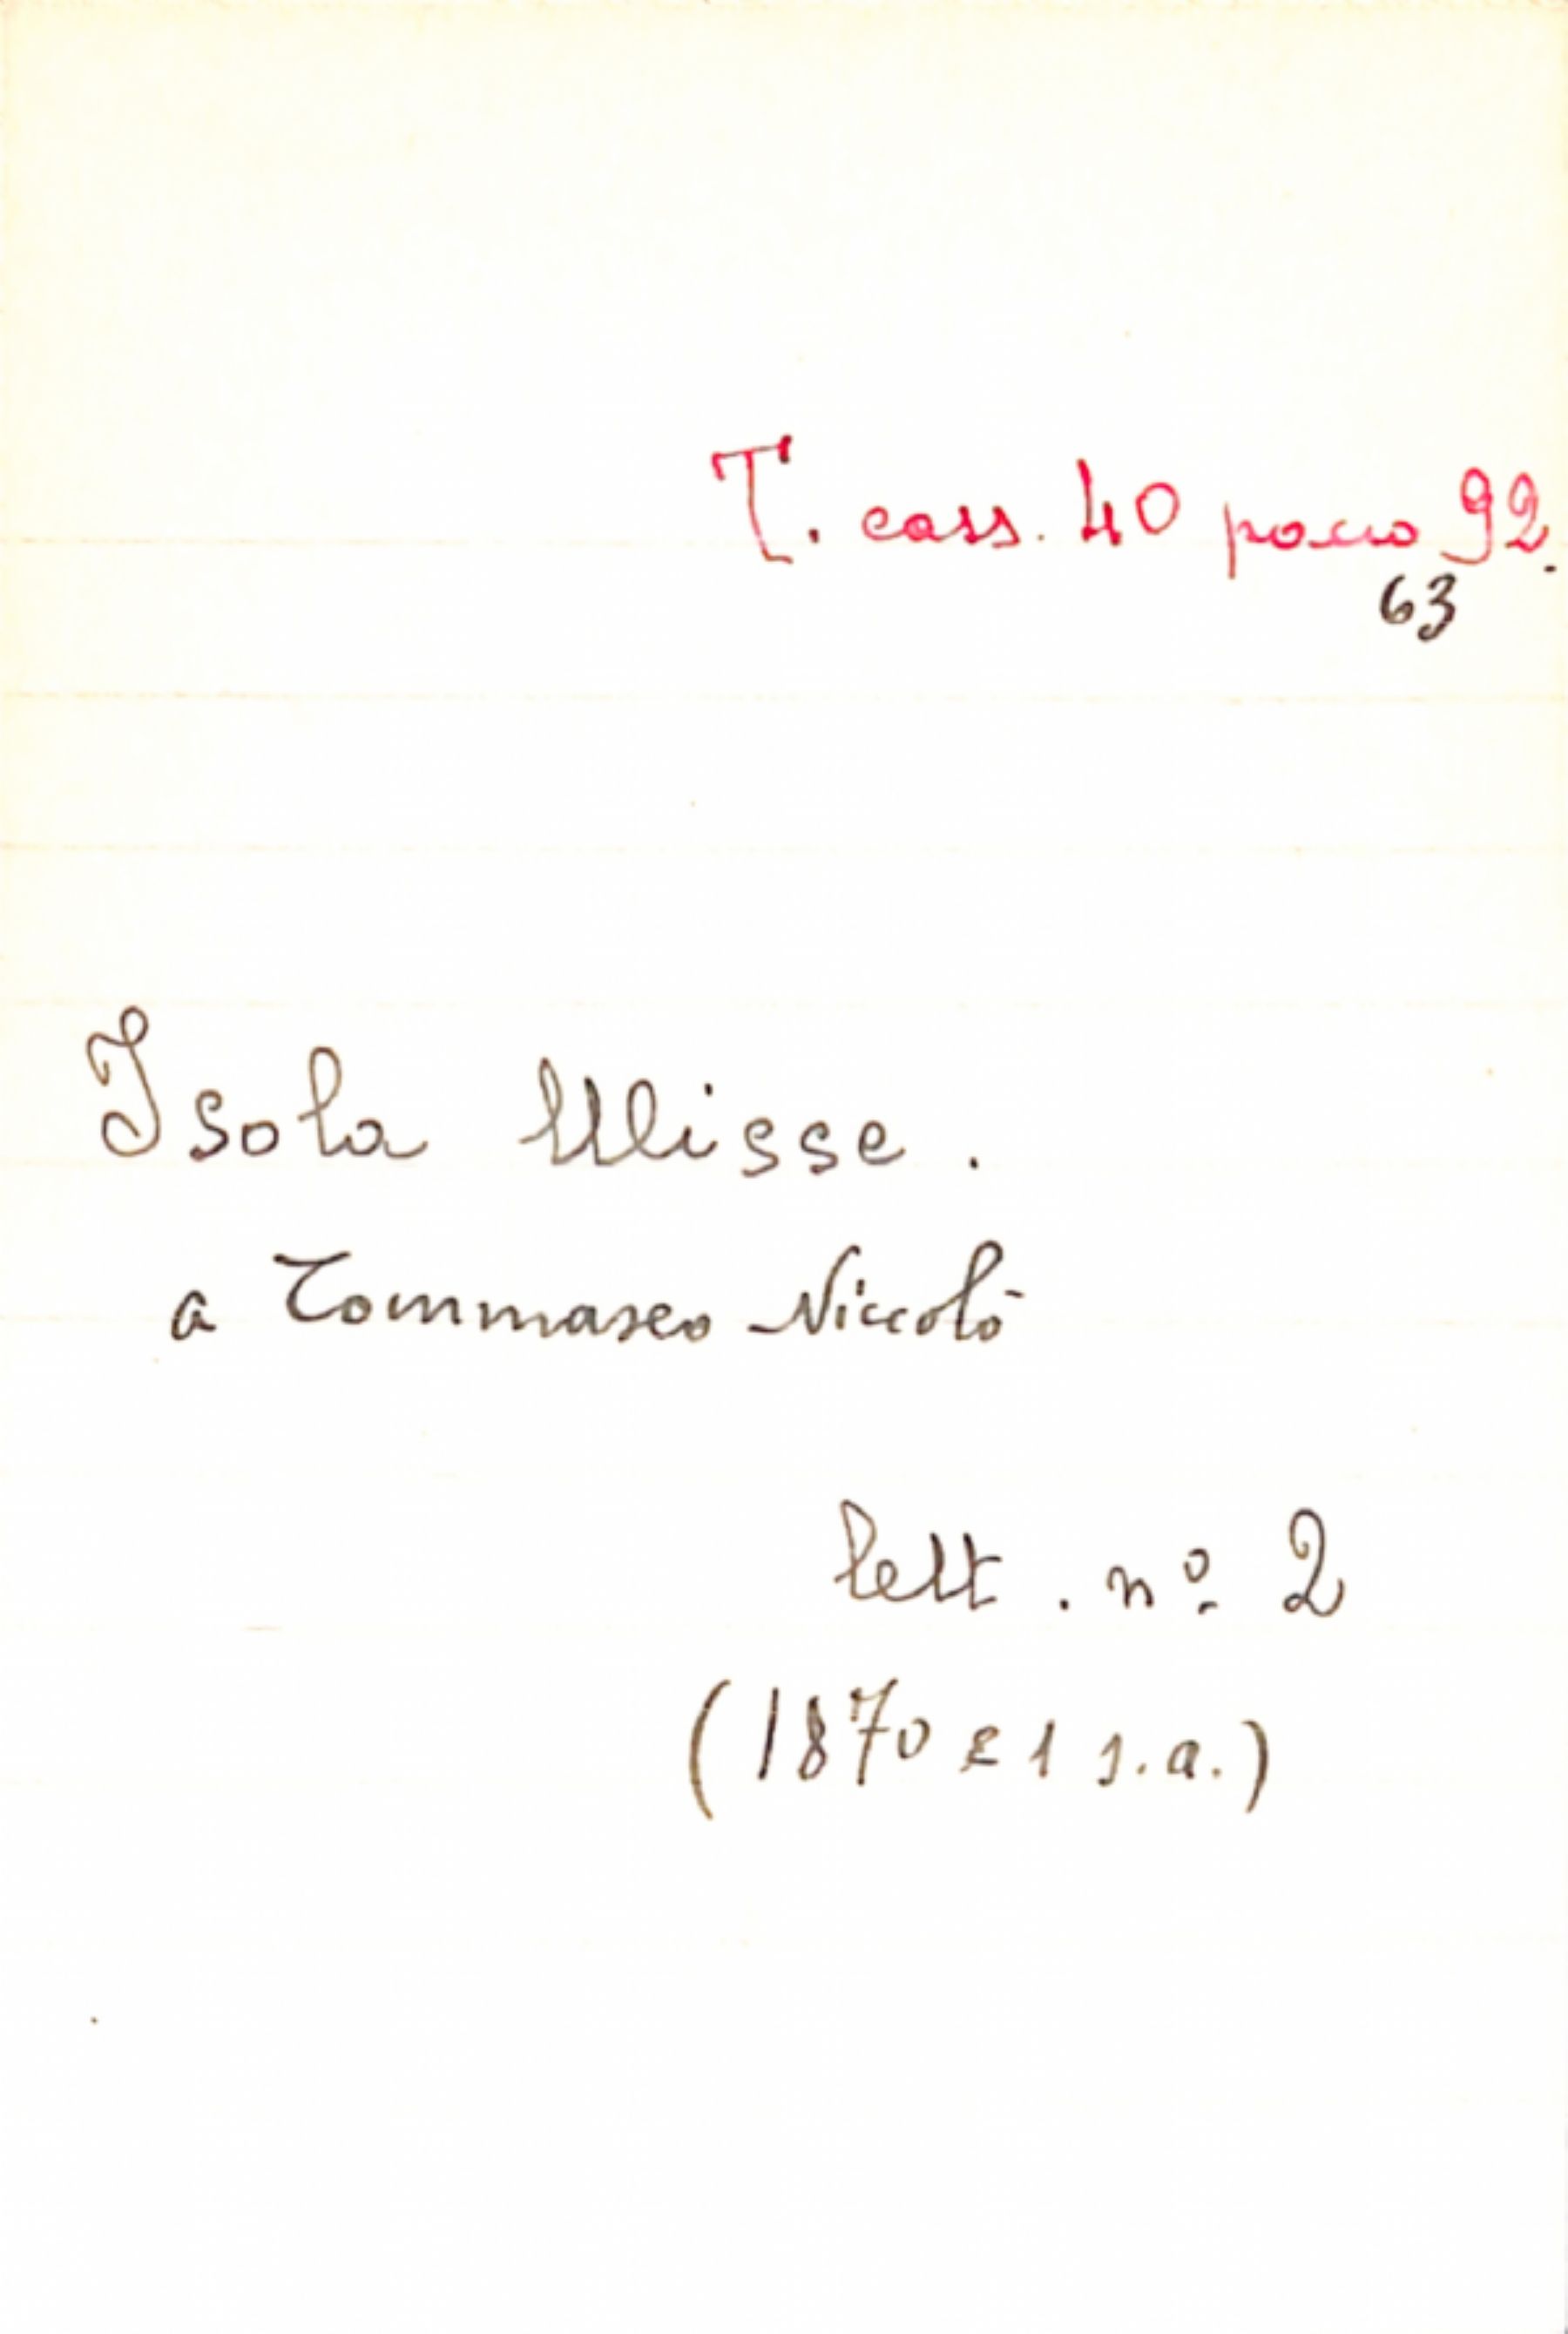 T. cass. 40 pacco 92.
63
Isola Ulisse.
a Tommaseo Niccolò
lett. nº 2
(1870 e 1 s.a.)